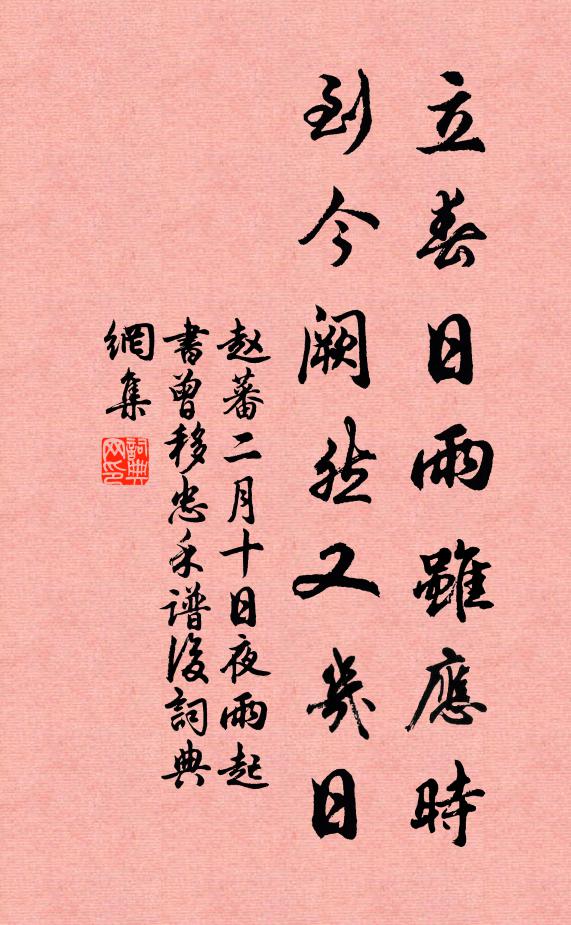 立春日雨雖應時
到今闕然又幾日
赵蕃二月十日夜雨起
書曾移忠禾谱後詞典
網集
詞典
网印